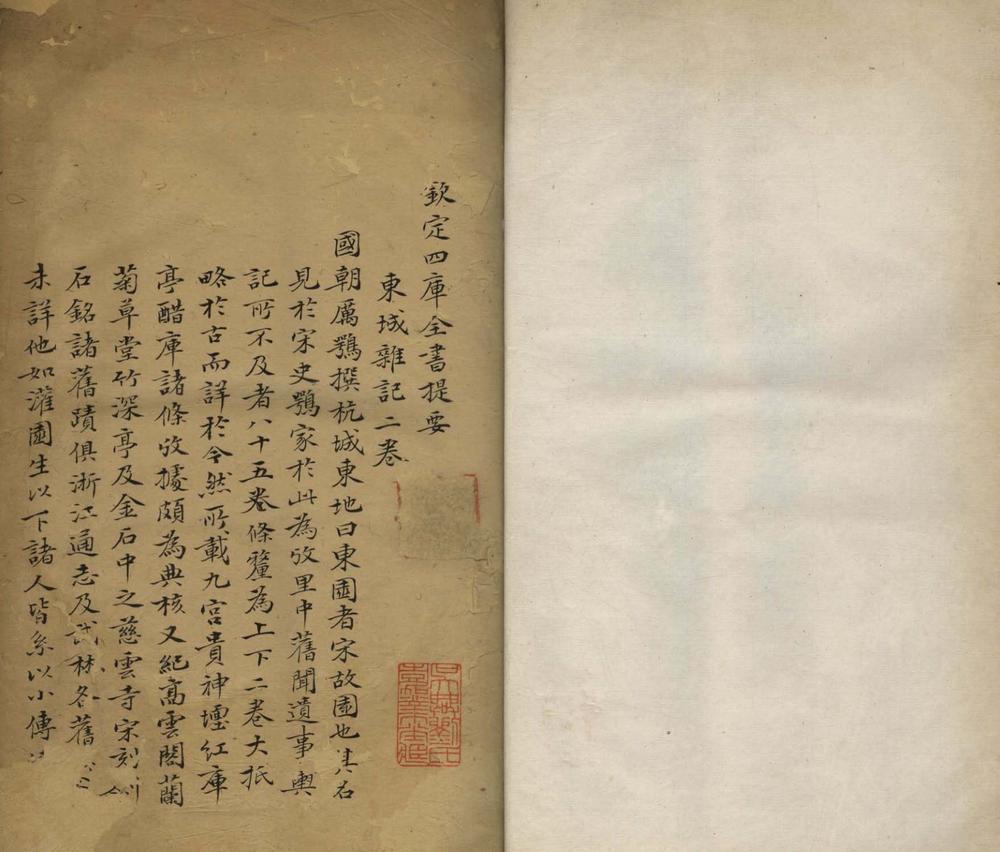 欽定四庫全書提要
東城雜記二卷
國朝厲鶚撰杭城東地曰東園者宋故園也其名
見於宋史鶚家於此為攷里中舊聞遺事輿
記所不及者八十五卷條釐為上下二卷大抵
略於古而詳於今然所載九宮貴神壇紅庫
亭醋庫諸條攷據頗為典核又紀高雲閣蘭
菊草堂竹深亭及金石中之慈雲寺宋刻
石銘諸舊蹟俱浙江通志及武林各舊
未詳他如灌園生以下諸人皆系以小傳